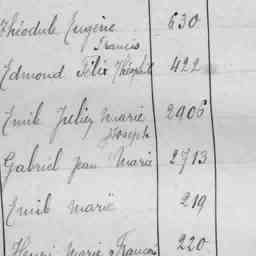 Théodule Eugène 630
Francis
Edmond Félix Théophile 422
Emile Julien Marie 2906
Joseph
Gabriel Jean Marie 2713
Emile Marie 219
Henri Marie Francois 220